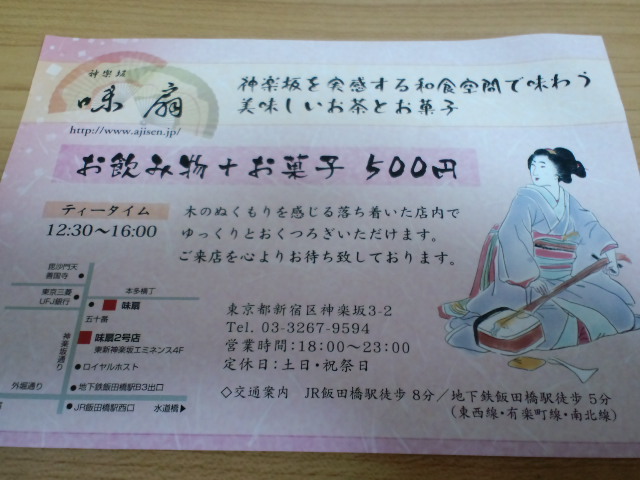 神楽坂
味扇
http://www.ajisen.jp/
神楽坂を実感する和食空間で味わう
美味しいお茶とお菓子
お飲み物＋お菓子 500円
ティータイム
12:30～16:00
木のぬくもりを感じる落ち着いた店内で
ゆっくりとおくつろぎいただけます。
ご来店を心よりお待ち致しております。
毘沙門天
善国寺
東京三菱
UFJ銀行
本多横丁
味扇
五十番
味扇2号店
東新神楽坂エミネンス4F
神楽坂通り
ロイヤルホスト
外堀通り
地下鉄飯田橋駅B3出口
JR飯田橋駅西口
水道橋▶
東京都新宿区神楽坂3-2
Tel. 03-3267-9594
営業時間:18:00～23:00
定休日:土日・祝祭日
◇交通案内 JR飯田橋駅徒歩 8分／地下鉄飯田橋駅徒歩 5分
(東西線・有楽町線・南北線)